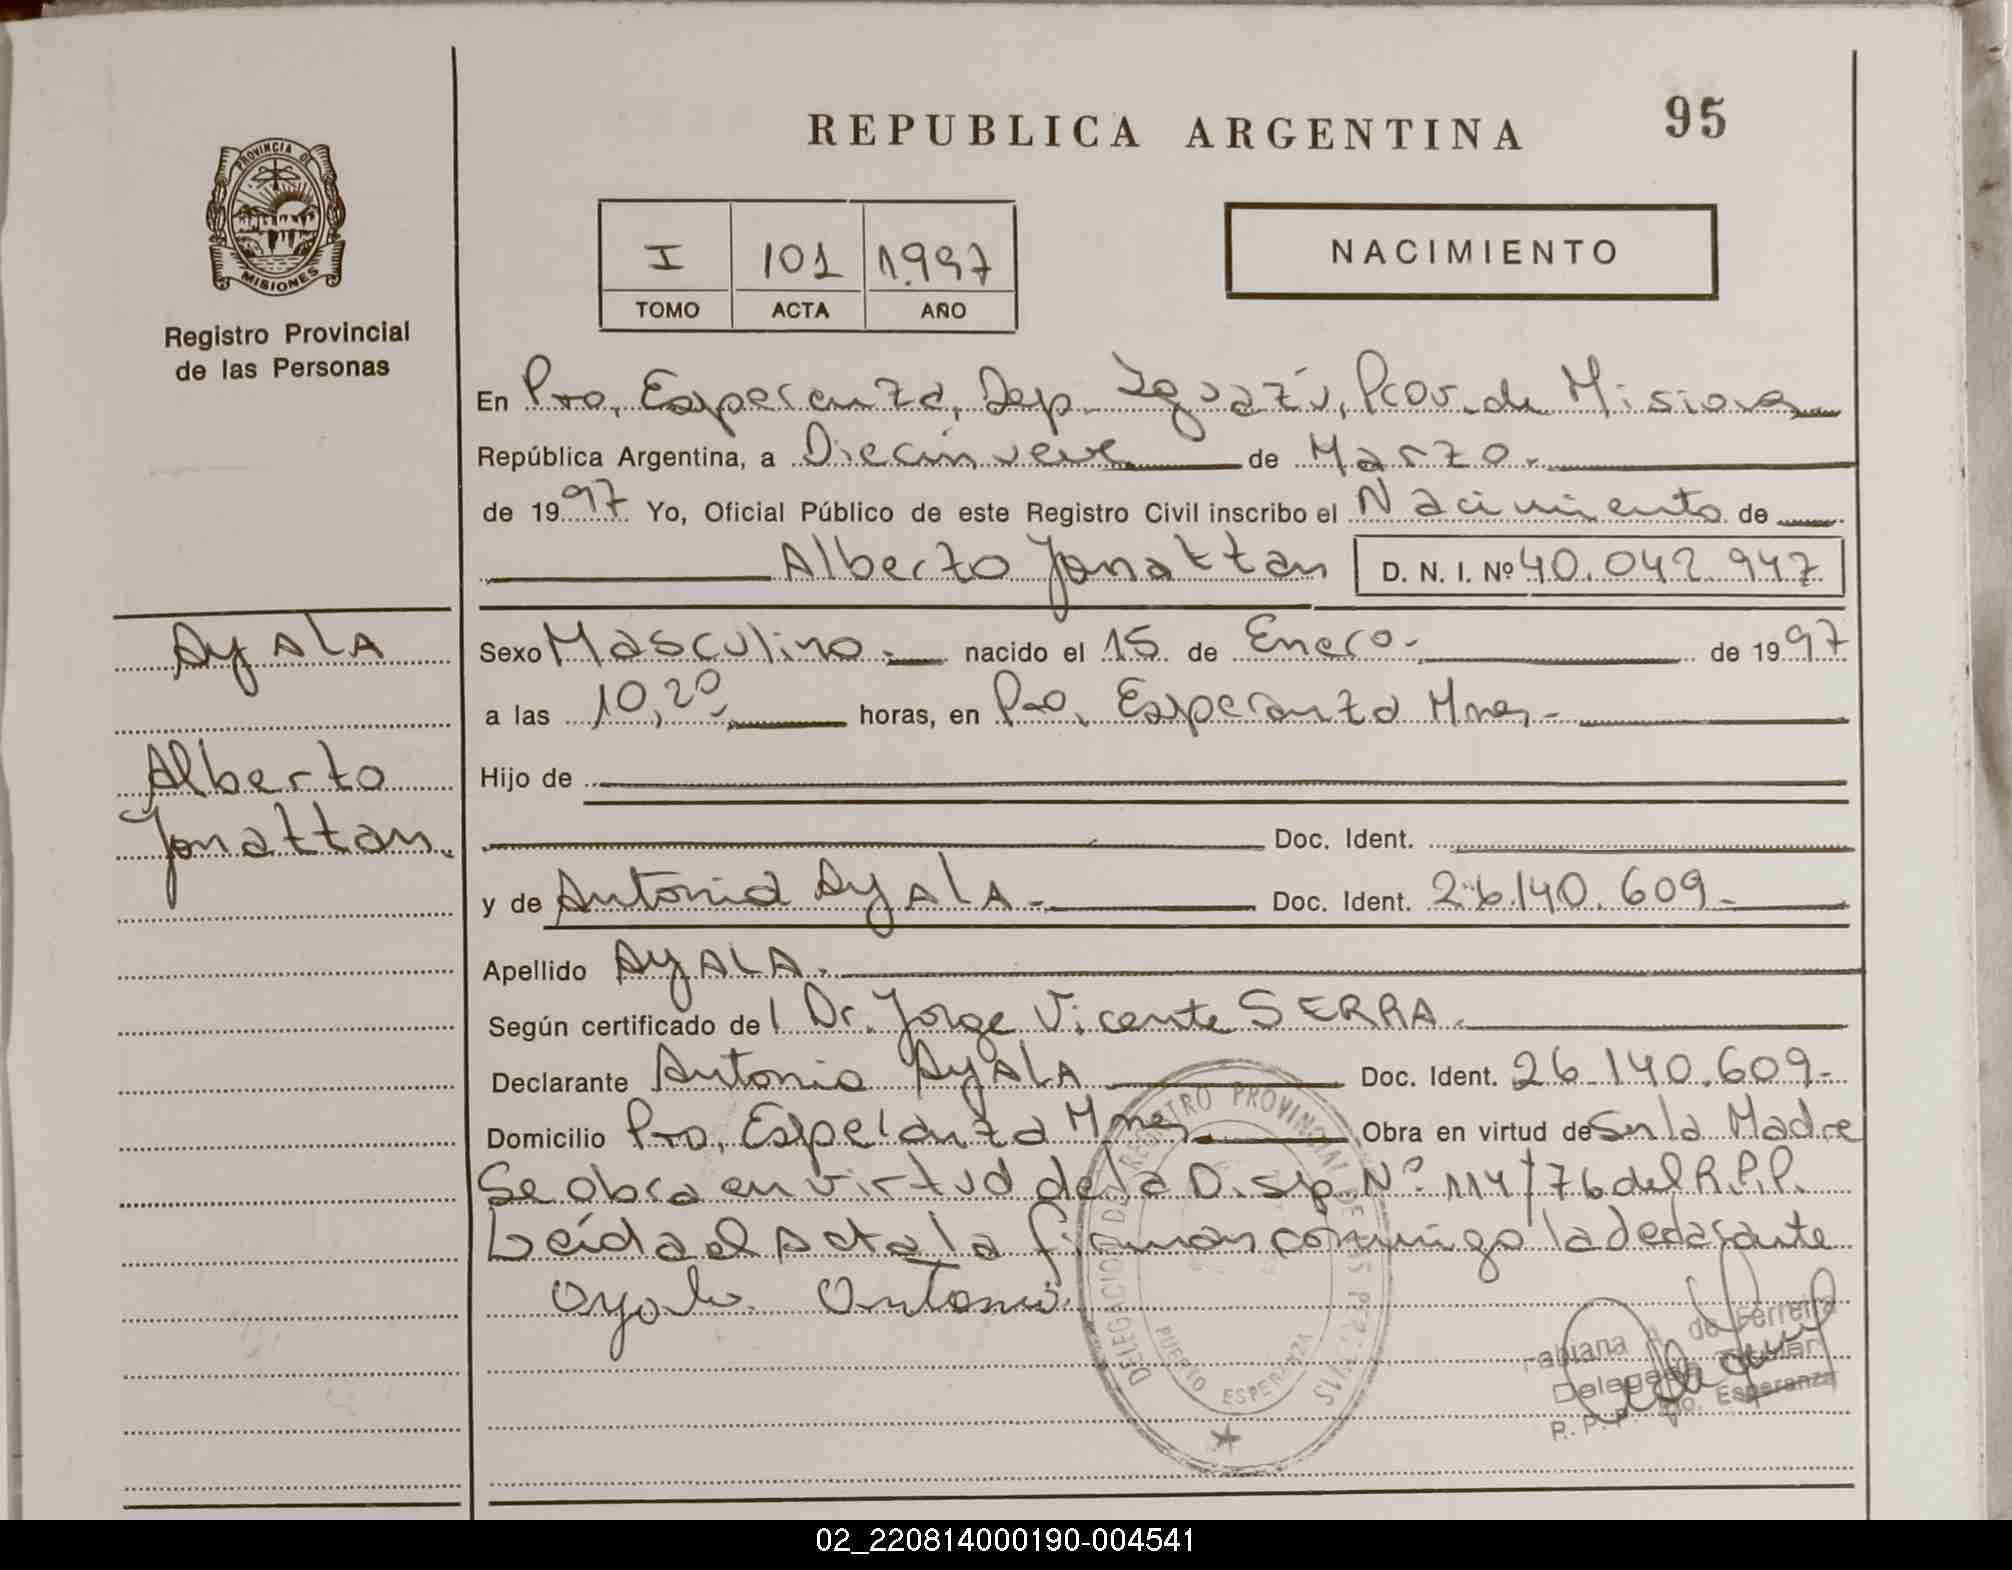 REPUBLICA ARGENTINA 95
PROVINCIA DE
MISIONES
Registro Provincial
de las Personas
I 101 1.997
TOMO ACTA AÑO
NACIMIENTO
En Pto. Esperanza, Dep. Iguazú, Prov. de Misiones
República Argentina, a Diecinueve de Marzo.
de 1997 Yo, Oficial Público de este Registro Civil inscribo el Nacimiento de
Alberto Jonattan D. N. I. Nº 40.042.947
AyALA
Alberto
Jonattan.
Sexo Masculino. nacido el 15 de Enero. de 1997
a las 10,20 horas, en Pto. Esperanza Mnes.
Hijo de
Doc. Ident.
y de Antonia AyALA. Doc. Ident. 26.140.609.
Apellido AyALA.
Según certificado del Dr. Jorge Vicente SERRA.
Declarante Antonia AyALA Doc. Ident. 26.140.609.
Domicilio Pto. Esperanza Mnes. Obra en virtud de Ser la Madre
Se obra en virtud de la Disp. Nº 114/76 del R.P.P.
Leída el Acta la firman conmigo la declarante
Ayala Antonia
DELEGACION DEL REGISTRO PROVINCIAL DE LAS PERSONAS
PUERTO ESPERANZA
Fabiana de Ferreira
Delegada Titular
R. P. P. Pto. Esperanza
02_220814000190-004541